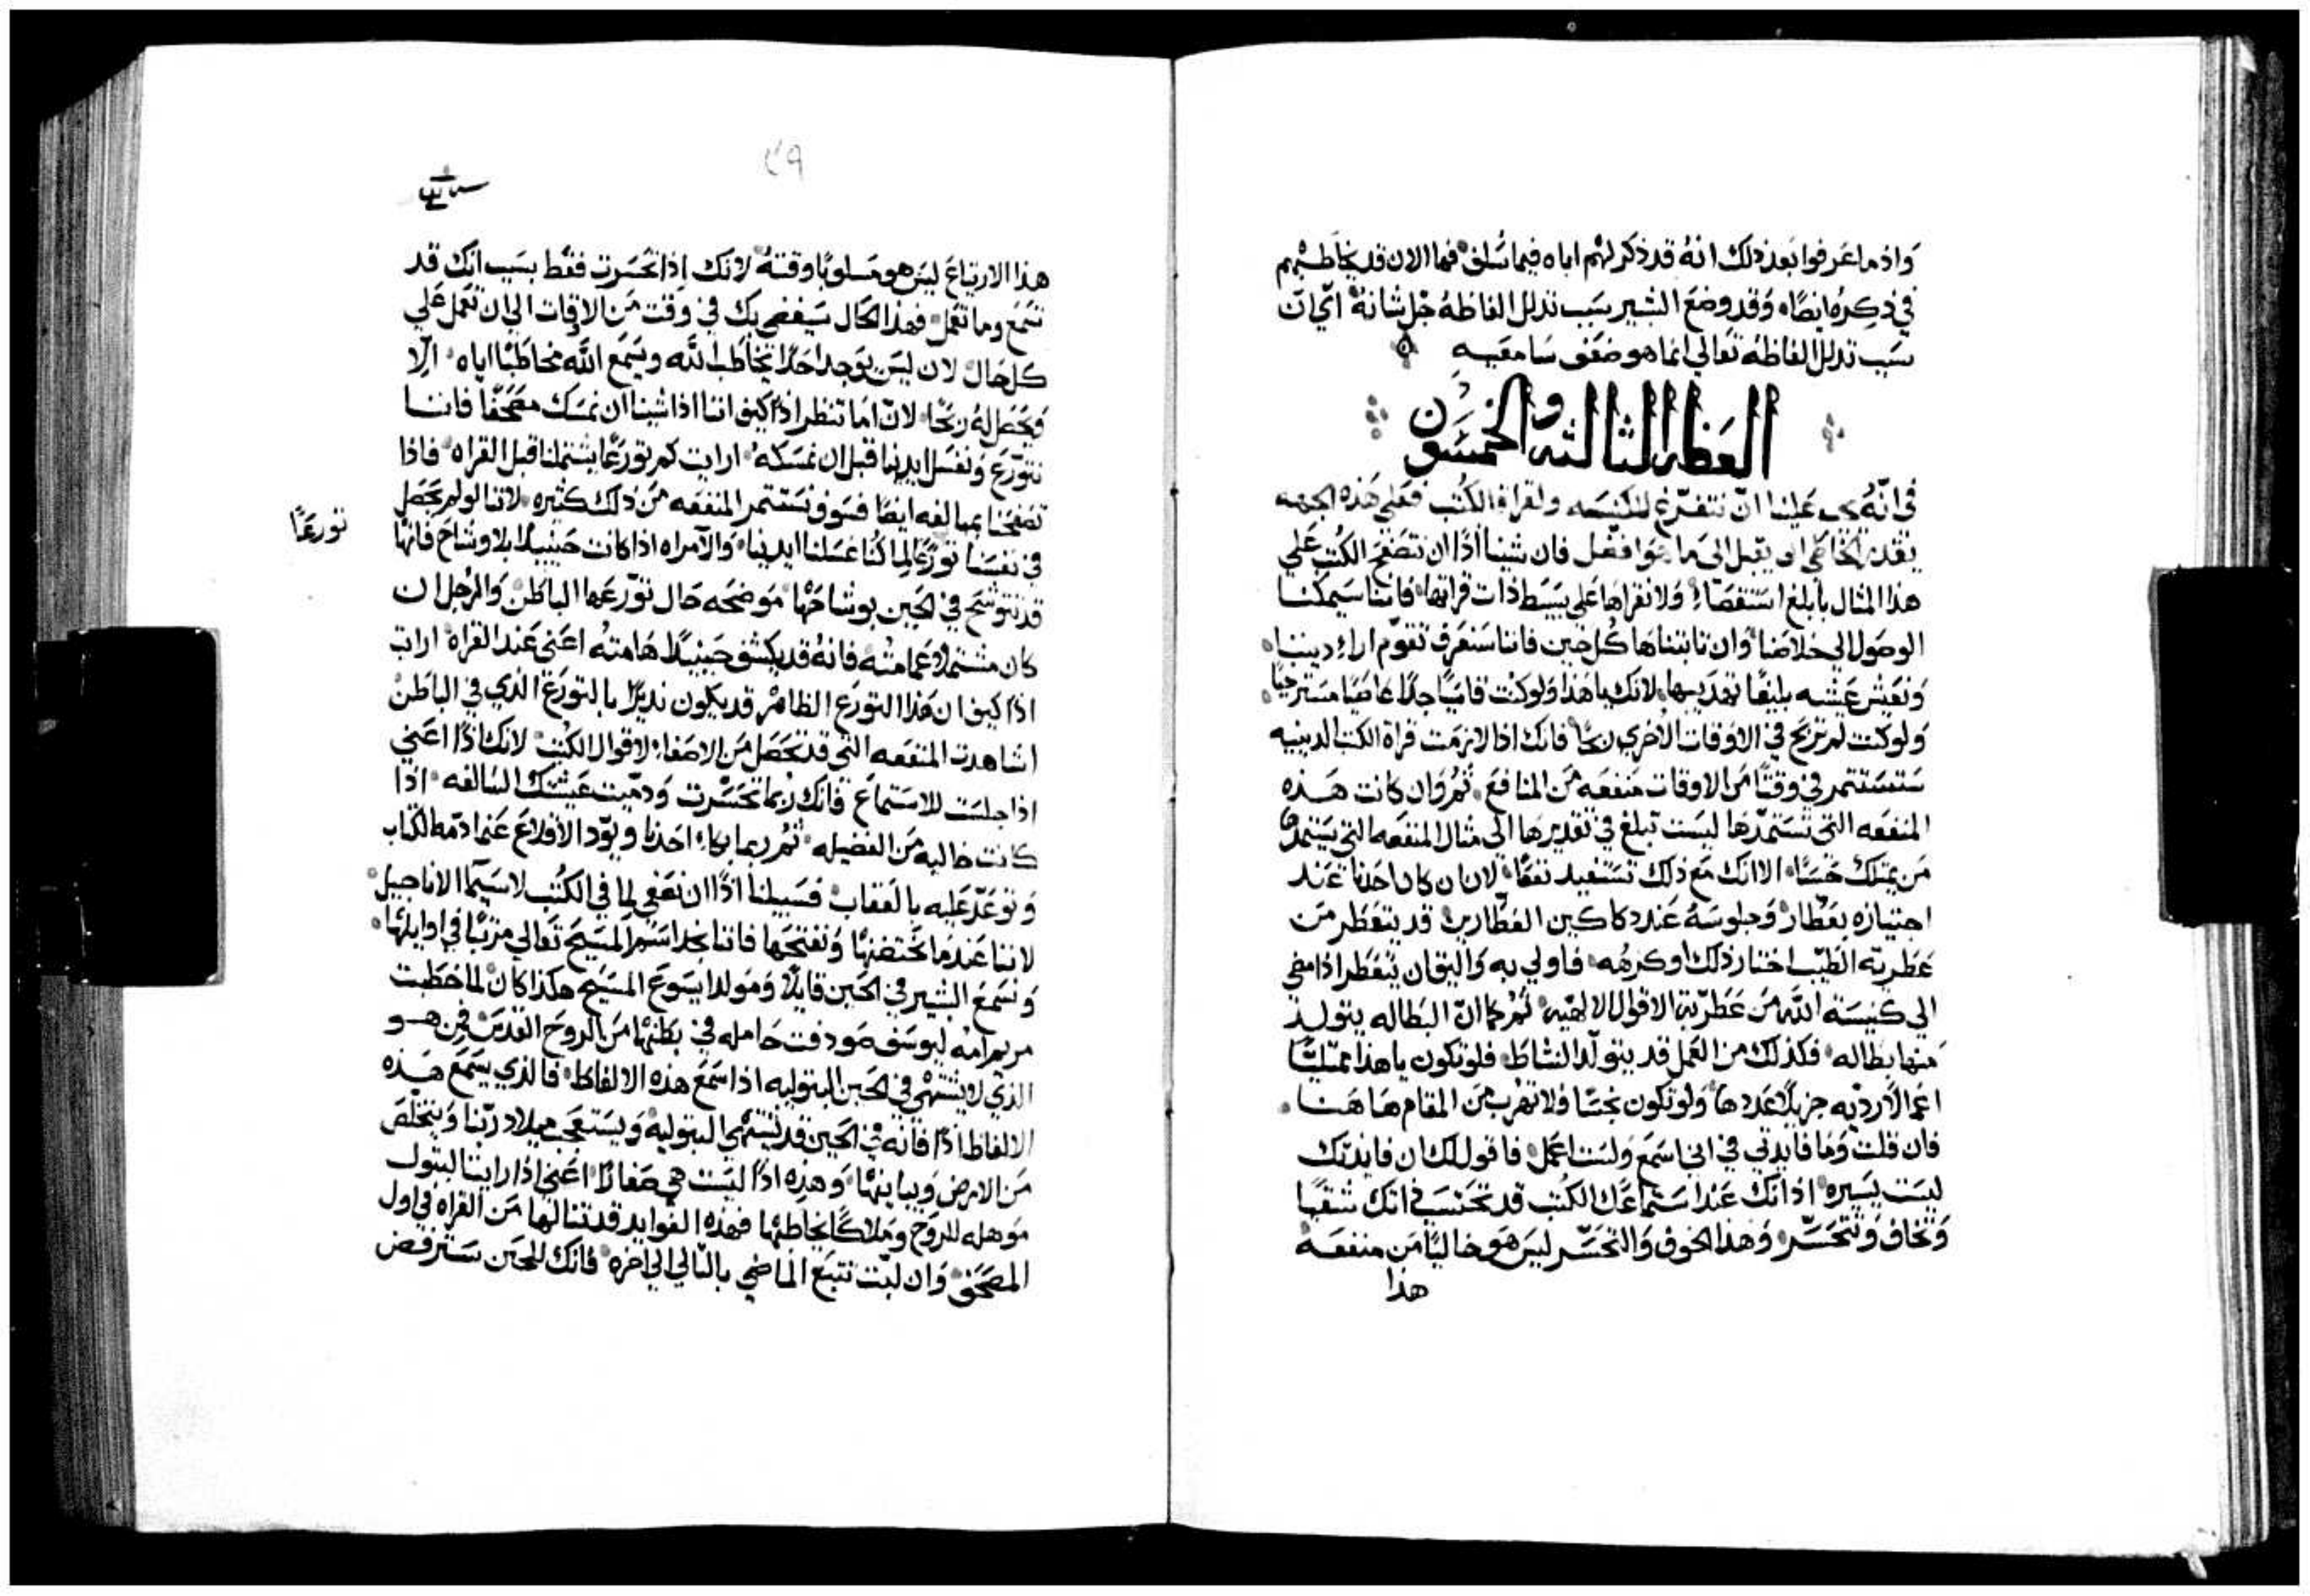 واذ ما عرفوا بعد ذلك انهُ قد ذكر لهم اباه فيما سلف فها الان قد يخاطبهم
في ذكره ايضًا وقد وضع البشير سبب تدلل الفاظهُ جل شانهُ اي ان
سبب تدلل الفاظهُ تعالي انما هو ضعف سامعيه
العظه الثالثه والخمسون
في انّهُ يجب علينا انّ نتفرّغ للكنيسه ولقراة الكتب فعلي هذه الجهه
يقدر الخاطي ان يقبل الى ما هو افضل فان شينا اذًا ان نتصفح الكتب علي
هذا المثال بابلغ استقصاء ولا نقراها على بسيط ذات قراتها فاننا سيمكننا
الوصول الي خلاصنا وان تابتناها كل حين فاننا سنعرف تقوّم اراء ديننا
ونعيش عيشه بليغًا تهديبها لانك يا هذا ولو كنت قاسيًا جدًا عاصيًا مسترخيًا
ولو كنت لم تربح في الاوقات الاخري ربحًا فانك اذا لازمت قراة الكتب الدينيه
ستستتمر في وقتًا من الاوقات منفعه من المنافع ثم وان كانت هذه
المنفعه التي تستمدّها ليست تبلغ في تقديرها الى مثال المنفعه التي يستمدها
من يمتلك حسًا الا انك مع ذلك تستفيد نفعًا لان ان كان احدنا عند
اجتيازه بعطّار وجلوسهُ عند دكاكين العطّارين قد يتعطر من
عطريّة الطيّب اختار ذلك او كرهُه فاولي به واليق ان يتعطر اذا مضى
الي كنيسة الله من عطريّة الاقوال الالهيّه ثم كما انّ البطاله يتولد
منها بطاله فكذلك من العمل قد يتولّد النشاط فلو تكون يا هذا ممتليًا
اعمالاً رديّه جزيلاً عددها ولو تكون نجسًا فلا تهرب من المقام هاهنا
فان قلت وما فايدتي في اني اسمع ولست اعمل فاقول لك ان فايدتك
ليست يسيره اذ انك عند استماعك الكتب قد تحتسب ذاتك شقيًا
وتخاف وتتحسّر وهذا الخوف والتحسّر ليس هو خاليًا من منفعه
هذا
هذا الارتياع ليس هو مسلوبًا وقتهُ لانك اذا تحسرت فقط بسبب انك قد
تسمع وما تعمل فهذا الحال سيفضي بك في وقت من الاوقات الي ان تعمل علي
كل حال لان ليس يوجد احدًا يخاطب الله ويسمع الله مخاطبًا اياه الّا
ويحصل له ربحًا لانّ اما تنظر اذًا كيف اننا اذا شينا ان نمسك مصحفًا فاننا
نتورّع ونغسل ايدينا قبل ان نمسكه ارايت كم تورعًا يشتملنا قبل القراه فاذا
تصفحنا بمبالغه ايضًا فسوف نستتمر المنفعه من ذلك كثيره لاننا لو لم نحصل
في نفسنا تورّعًا لما كنا غسلنا ايدينا والامراه اذا كانت حينيذ بلا وشاح فانها
تورعًا
قد تتوشح في الحين بوشاحها موضحه حال تورّعها الباطن والرجل ان
كان مشتملاً عمامتهُ فانهُ قد يكشف حينيذ هامتهُ اعني عند القراه ارايت
اذًا كيف ان هذا التورع الظاهر قد يكون نديرًا بالتورع الذي في الباطن
اشاهدت المنفعه التي قد تحصل من الاصغاء لاقوال الكتب لانك اذًا اعني
اذا جلست للاستماع فانك ربما تحسّرت ودمّيت عيشتك السالفه اذا
كانت خاليه من الفضيله ثم ربما بكاء احدنا ويوّد الاقلاع عما ادّمه الكتاب
وتوعّد عليه بالعقاب فسبيلنا اذًا ان نصغي لما في الكتب لا سيما الاناجيل
لاننا عندما نحتضنها ونفتحها فاننا نجد اسم المسيح تعالي مرتبًا في اوايلها
ونسمع البشير في الحين قايلاً ومولد ايسوع المسيح هكذا كان لما خطبت
مريم امه ليوسف صودفت حامله في بطنها من الروح القدس فمن هو
الذي لا يشتهي في الحين البتوليه اذا سمع هذه الالفاظ فالذي يسمع هذه
الالفاظ اذًا فانه في الحين قد يشتهي البتولية ويستعجب ميلاد ربّنا ويتخلّص
من الارض ويباينها وهذه اذًا ليست هي صغارًا اعني اذا راينا البتول
موهله للروح وملاكًا يخاطبها فهذه الفوايد قد تنالها من القراه في اول
المصحف وان لبثت تتبع الماضي بالتالي الي اخره فانك للحين سترفض